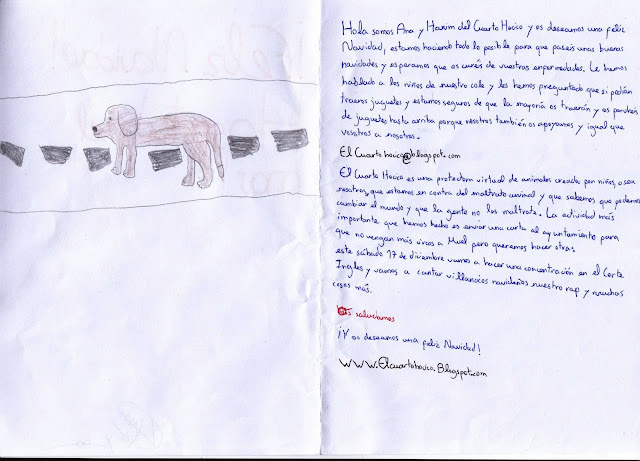 Hola somos Ana y Maxim del Cuarto Hocico y os deseamos una feliz
Navidad, estamos haciendo todo lo posible para que paseis unas buenas
navidades y esperamos que os cureis de vuestras enfermedades. Le hemos
hablado a los niños de nuestro cole y les hemos preguntado que si podían
traeros juguetes y estamos seguros de que la mayoría os traerán y os pondreis
de juguetes hasta arriba porque vosotros también os apoyamos y igual que
vosotros a nosotros.
El Cuarto hocico@blogspot.com
El Cuarto Hocico es una protectora virtual de animales creada por niños, o sea
nosotros, que estamos en contra del maltrato animal y que sabemos que podemos
cambiar el mundo y que la gente no los maltrate. La actividad más
importante que hemos hecho es enviar una carta al ayuntamiento para
que no vengan más circos a Muel pero queremos hacer otras
este sábado 17 de diciembre vamos a hacer una concentración en el Corte
Ingles y vamos a cantar villancicos navideños nuestro rap y muchas
cosas más.
Os saludamos
¡Y os deseamos una feliz Navidad!
www.Elcuartohocico.Blogspot.com